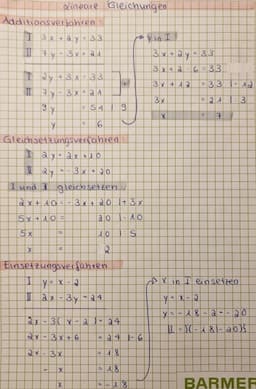 Lineare Gleichungen
Additionsverfahren
I 3x + 2y = 33
II 7y - 3x = 21
I 2y + 3x = 33
II 7y - 3x = 21
9y = 54 | 9
y = 6
y in I
3x + 2y = 33
3x + 2 · 6 = 33
3x + 12 = 33 | - 12
3x = 21 | 3
x = 7
Gleichsetzungsverfahren
I 2y = 2x + 10
II 2y = - 3x + 20
I und II gleichsetzen
2x + 10 = - 3x + 20 | + 3x
5x + 10 = 20 | - 10
5x = 10 | 5
x = 2
Einsetzungsverfahren
I y = x - 2
II 2x - 3y = 24
2x - 3( x - 2 ) = 24
2x - 3x + 6 = 24 | - 6
2x - 3x = 18
- x = 18
x = - 18
x in I einsetzen
y = x - 2
y = - 18 - 2 = - 20
IL = {( - 18 | - 20)}
BARMER